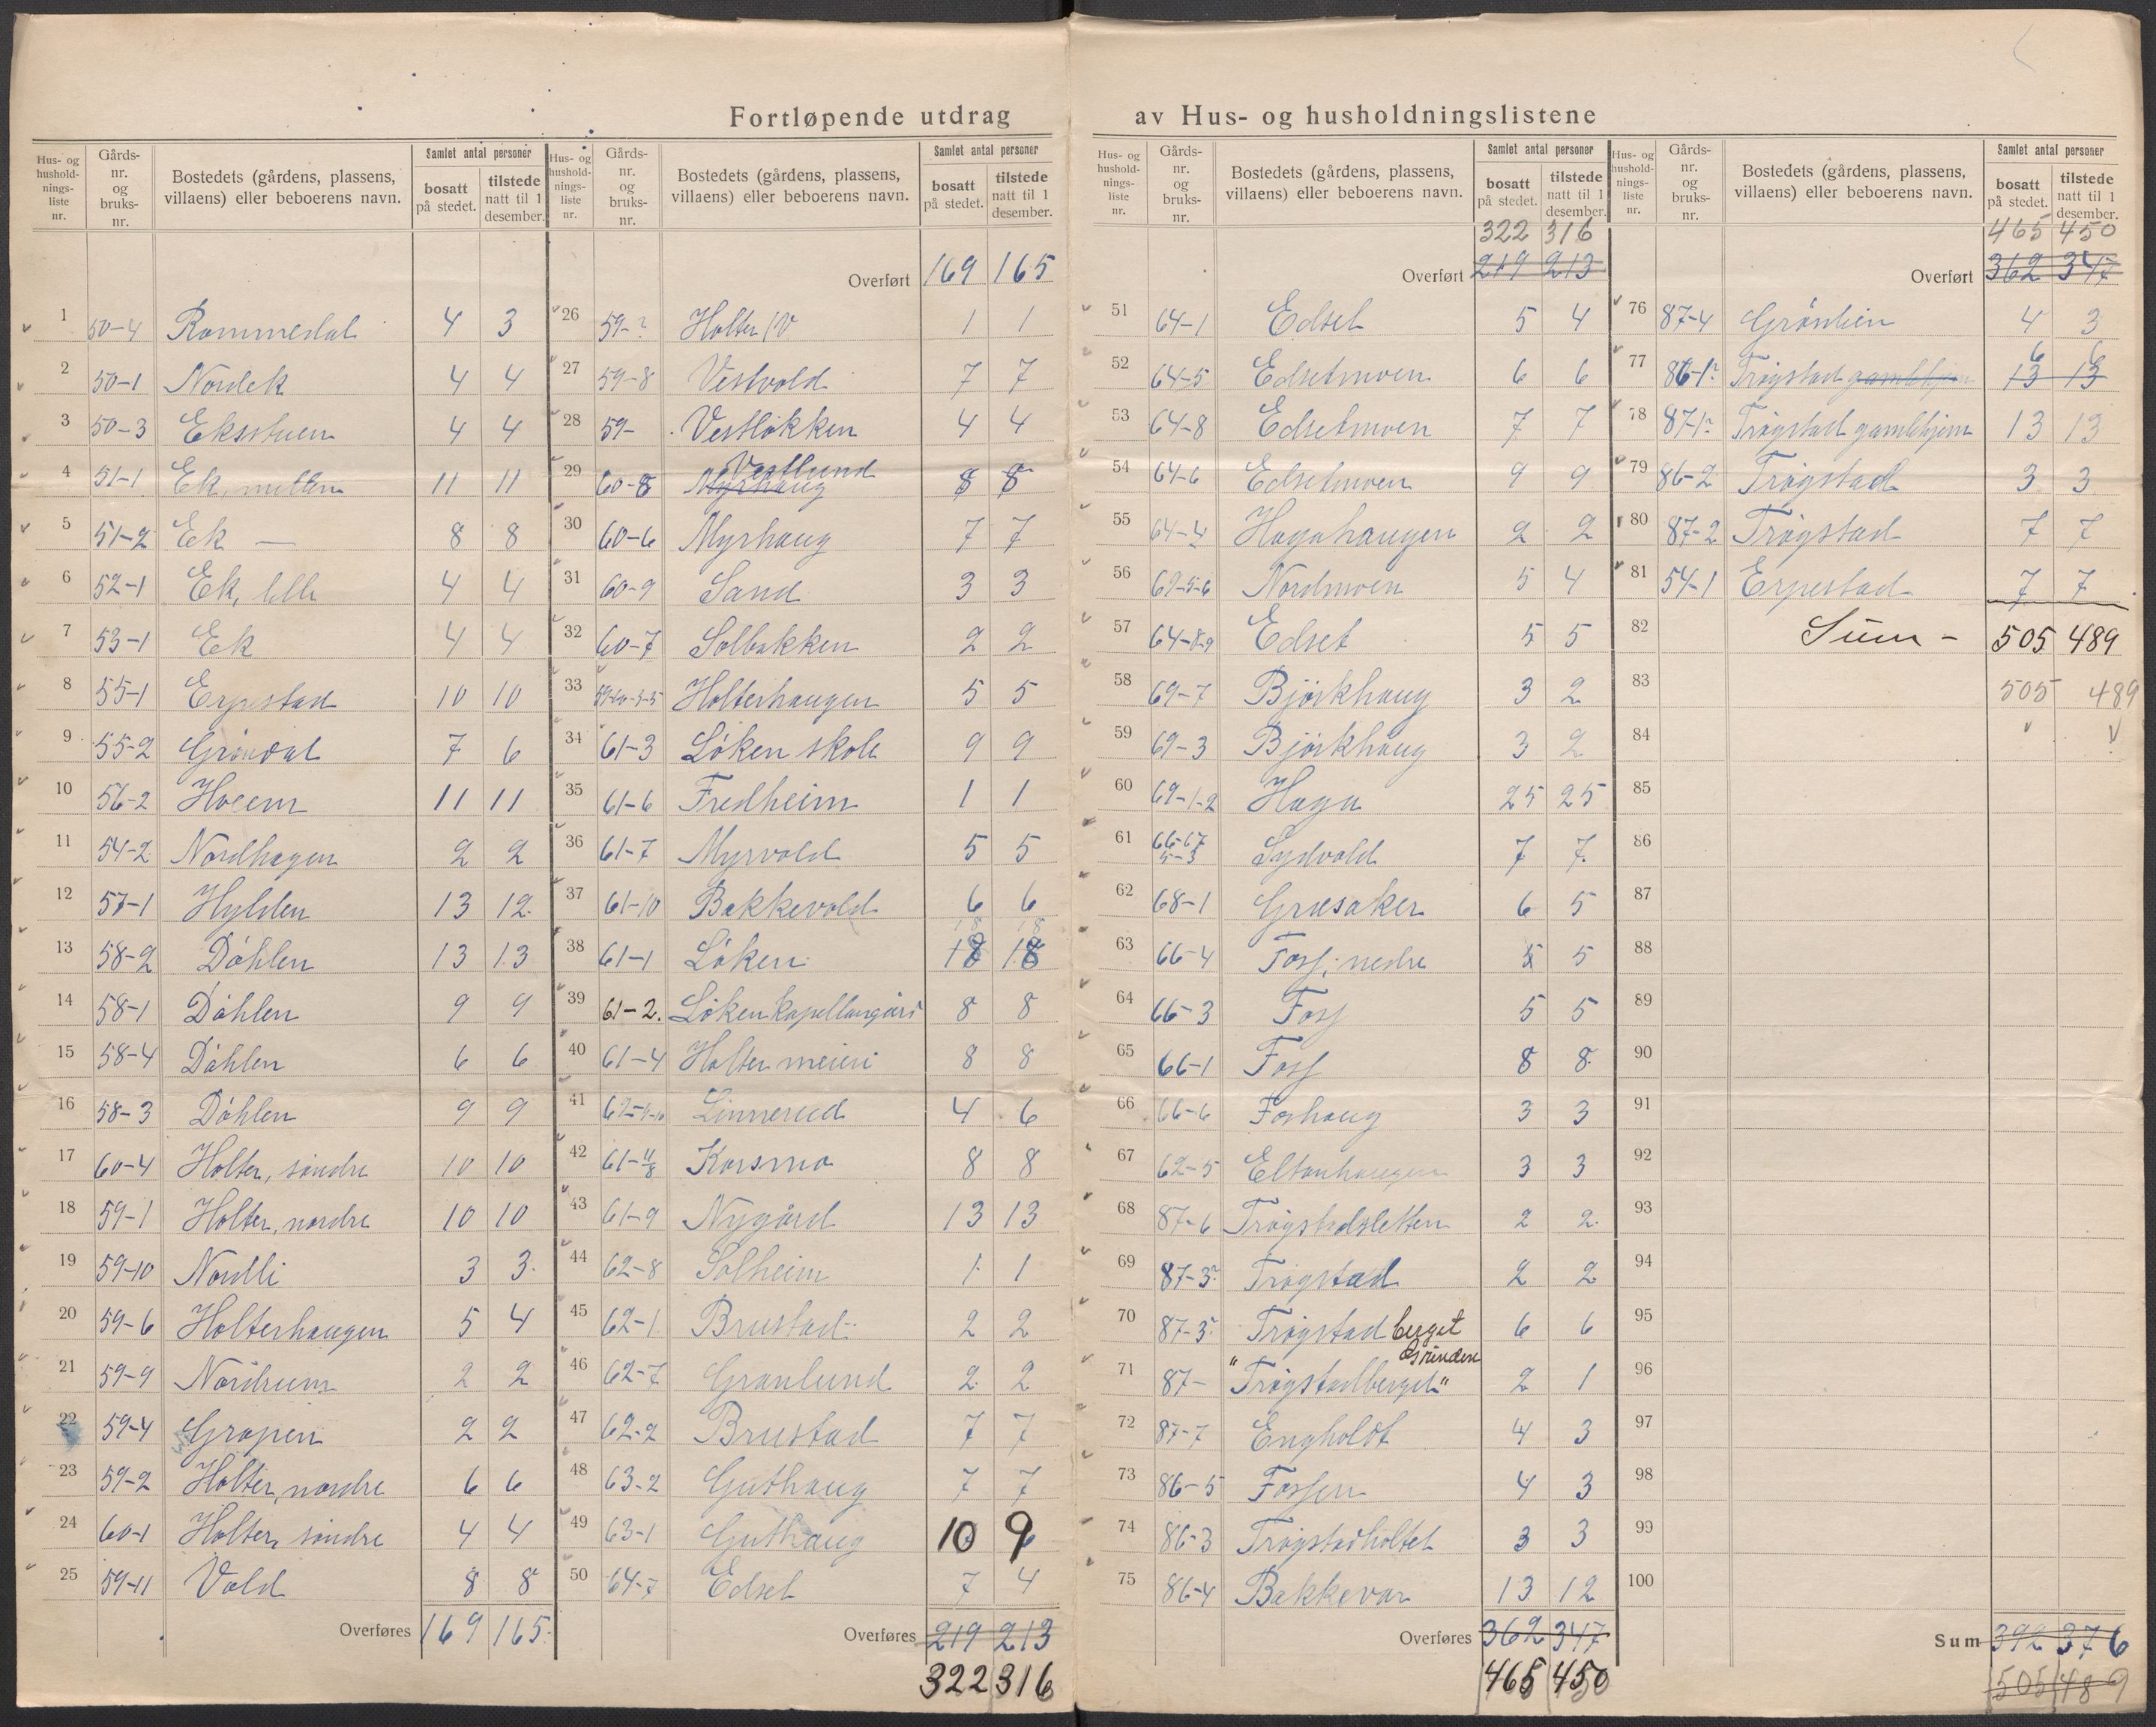 Fortløpende utdrag av Hus- og husholdningslistene
Hus- og hushold-nings-liste nr. Gårds-nr. og bruks-nr. Bostedets (gårdens, plassens, villaens) eller beboerens navn. Samlet antal personer bosatt på stedet. tilstede natt til 1 desember.
1 50-4 Rommedal 4 3
2 50-1 Nordek 4 4
3 50-3 Eksstuen 4 4
4 51-1 Ek, mellem 11 11
5 51-2 Ek — 8 8
6 52-1 Ek, lille 4 4
7 53-1 Ek 4 4
8 55-1 Erpestad 10 10
9 55-2 Gröndal 7 6
10 56-2 Hoem 11 11
11 54-2 Nordhagen 2 2
12 57-1 Hylden 13 12
13 58-2 Döhlen 13 13
14 58-1 Döhlen 9 9
15 58-4 Döhlen 6 6
16 58-3 Döhlen 9 9
17 60-4 Holter, söndre 10 10
18 59-1 Holter, nordre 10 10
19 59-10 Nordli 3 3
20 59-6 Holterhaugen 5 4
21 59-9 Nordrum 2 2
22 59-4 Gropen 2 2
23 59-2 Holter, nordre 6 6
24 60-1 Holter, söndre 4 4
25 59-11 Vold 8 8
Overføres 169 165
Hus- og hushold-nings-liste nr. Gårds-nr. og bruks-nr. Bostedets (gårdens, plassens, villaens) eller beboerens navn. Samlet antal personer bosatt på stedet. tilstede natt til 1 desember.
Overført 169 165
26 59-? Holter /V 1 1
27 59-8 Vestvold 7 7
28 59- Vestlökken 4 4
29 60-8 Myrhaug Vestlund 8 8
30 60-6 Myrhaug 7 7
31 60-9 Sand 3 3
32 60-7 Solbakken 2 2
33 Holterhaugen 5 5
34 61-3 Löken skole 9 9
35 61-6 Fredheim 1 1
36 61-7 Myrvold 5 5
37 61-10 Bakkevold 6 6
38 61-1 Löken 18 18
39 61-2. Löken kapellangård 8 8
40 61-4 Holter meieri 8 8
41 Linnerud 4 6
42 61-11/8 Korsmo 8 8
43 61-9 Nygård 13 13
44 62-8 Solheim 1 1
45 62-1 Brustad 2 2
46 62-7 Granlund 2 2
47 62-2 Brustad 7 7
48 63-2 Guthaug 7 7
49 63-1 Guthaug 10 9
50 64-7 Edset 7 4
Overføres 219 213
322 316
Hus- og hushold-nings-liste nr. Gårds-nr. og bruks-nr. Bostedets (gårdens, plassens, villaens) eller beboerens navn. Samlet antal personer bosatt på stedet. tilstede natt til 1 desember.
322 316
Overført 219 213
51 64-1 Edset 5 4
52 64-5 Edsetmoen 6 6
53 64-8 Edsetmoen 7 7
54 64-6 Edsetmoen 9 9
55 64-4 Hagahaugen 2 2
56 69-5-6 Nordmoen 5 4
57 64-8-9 Edset 5 5
58 69-7 Björkhaug 3 2
59 69-3 Björkhaug 3 2
60 69-1-2 Haga 25 25
61 66-67 5-3 Sydvold 7 7
62 68-1 Græsaker 6 5
63 66-4 Foss, nedre 5 5
64 66-3 Foss 5 5
65 66-1 Foss 8 8
66 66-6 Foshaug 3 3
67 62-5 Eltonhaugen 3 3
68 87-6 Trögstadsletten 2 2
69 87-3? Trögstad 2 2
70 87-3? Trögstad berget 6 6
71 87- "Trögstadberget" Grinden 2 1
72 87-7 Engholdt 4 3
73 86-5 Fossen 4 3
74 86-3 Trögstadholtet 3 3
75 86-4 Bakkevar 13 12
Overføres 362 347
465 450
Hus- og hushold-nings-liste nr. Gårds-nr. og bruks-nr. Bostedets (gårdens, plassens, villaens) eller beboerens navn. Samlet antal personer bosatt på stedet. tilstede natt til 1 desember.
465 450
Overført 362 347
76 87-4 Grönlien 4 3
6 6
77 86-1? Trögstad gamlehjem 13 13
78 87-1? Trögstad gamlehjem 13 13
79 86-2 Trögstad 3 3
80 87-2 Trögstad 7 7
81 54-1 Erpestad 7 7
82 Sum - 505 489
83 505 489
84
85
86
87
88
89
90
91
92
93
94
95
96
97
98
99
100
Sum 392 376
505 489